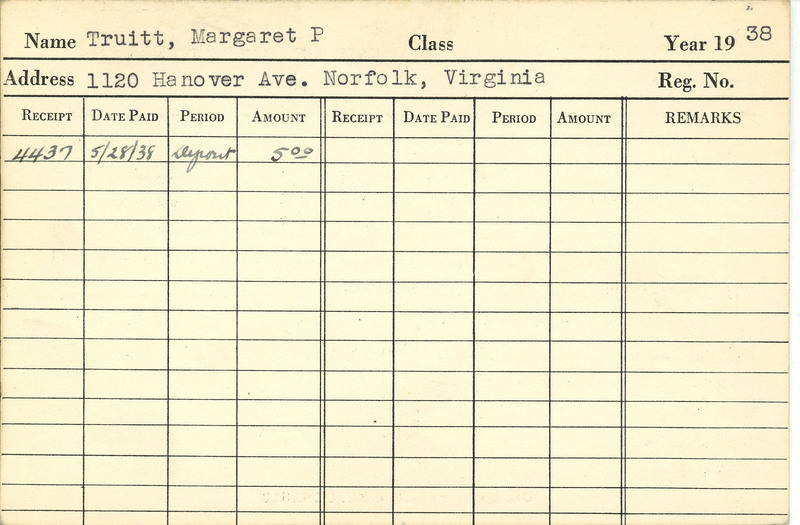 Name Truitt, Margaret P Class Year 19 38
Address 1120 Hanover Ave. Norfolk, Virginia Reg. No.
RECEIPT DATE PAID PERIOD AMOUNT RECEIPT DATE PAID PERIOD AMOUNT REMARKS
4437 5/28/38 Deposit 5.00